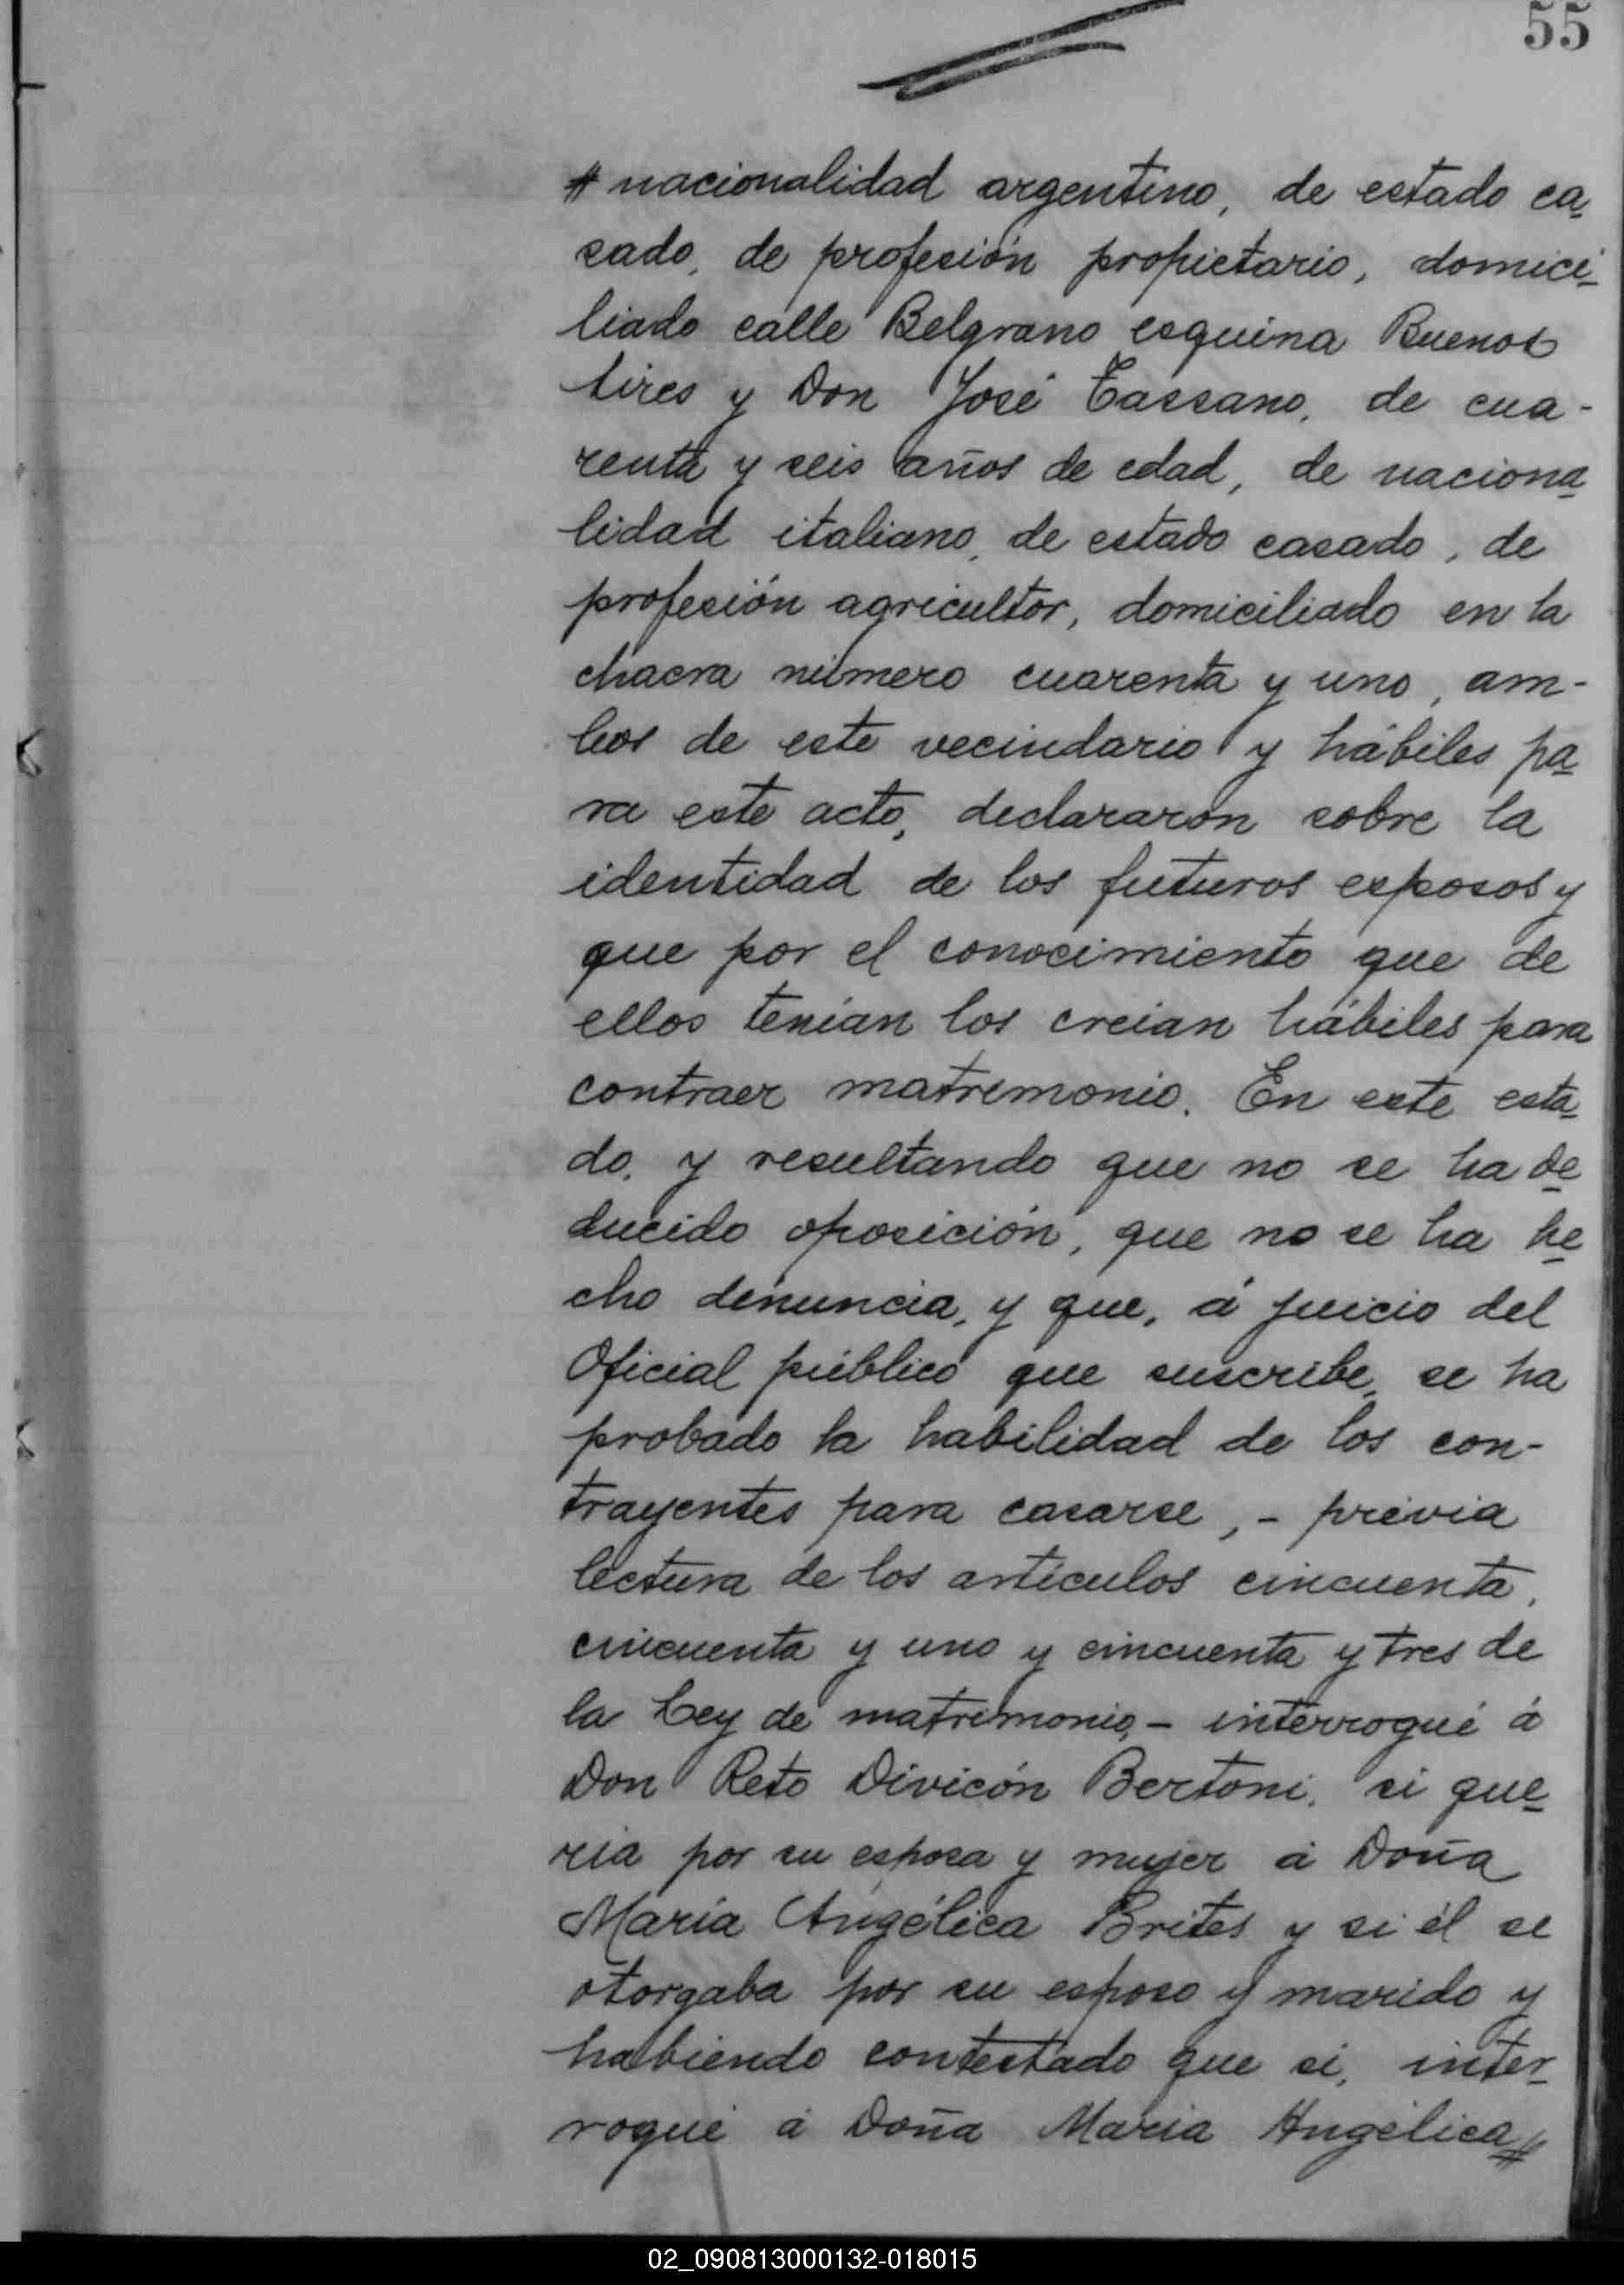 55
# nacionalidad argentino, de estado ca_
sado, de profesión propietario, domici_
liado calle Belgrano esquina Buenos
Aires y Don José Cassano, de cua-
renta y seis años de edad, de naciona_
lidad italiano, de estado casado, de
profesión agricultor, domiciliado en la
chacra número cuarenta y uno, am-
bos de este vecindario y hábiles pa_
ra este acto, declararon sobre la
identidad de los futuros esposos y
que por el conocimiento que de
ellos tenían los creían hábiles para
contraer matrimonio. En este esta_
do, y resultando que no se ha de_
ducido oposición, que no se ha he_
cho denuncia, y que, á juicio del
Oficial público que suscribe, se ha
probado la habilidad de los con-
trayentes para casarse, - previa
lectura de los artículos cincuenta,
cincuenta y uno y cincuenta y tres de
la Ley de matrimonio, - interrogué á
Don Reto Divicón Bertoni, si que_
ria por su esposa y mujer á Doña
María Angélica Brites y si él se
otorgaba por su esposo y marido y
habiendo contestado que si, inter_
rogué á Doña María Angélica #
02_090813000132-018015